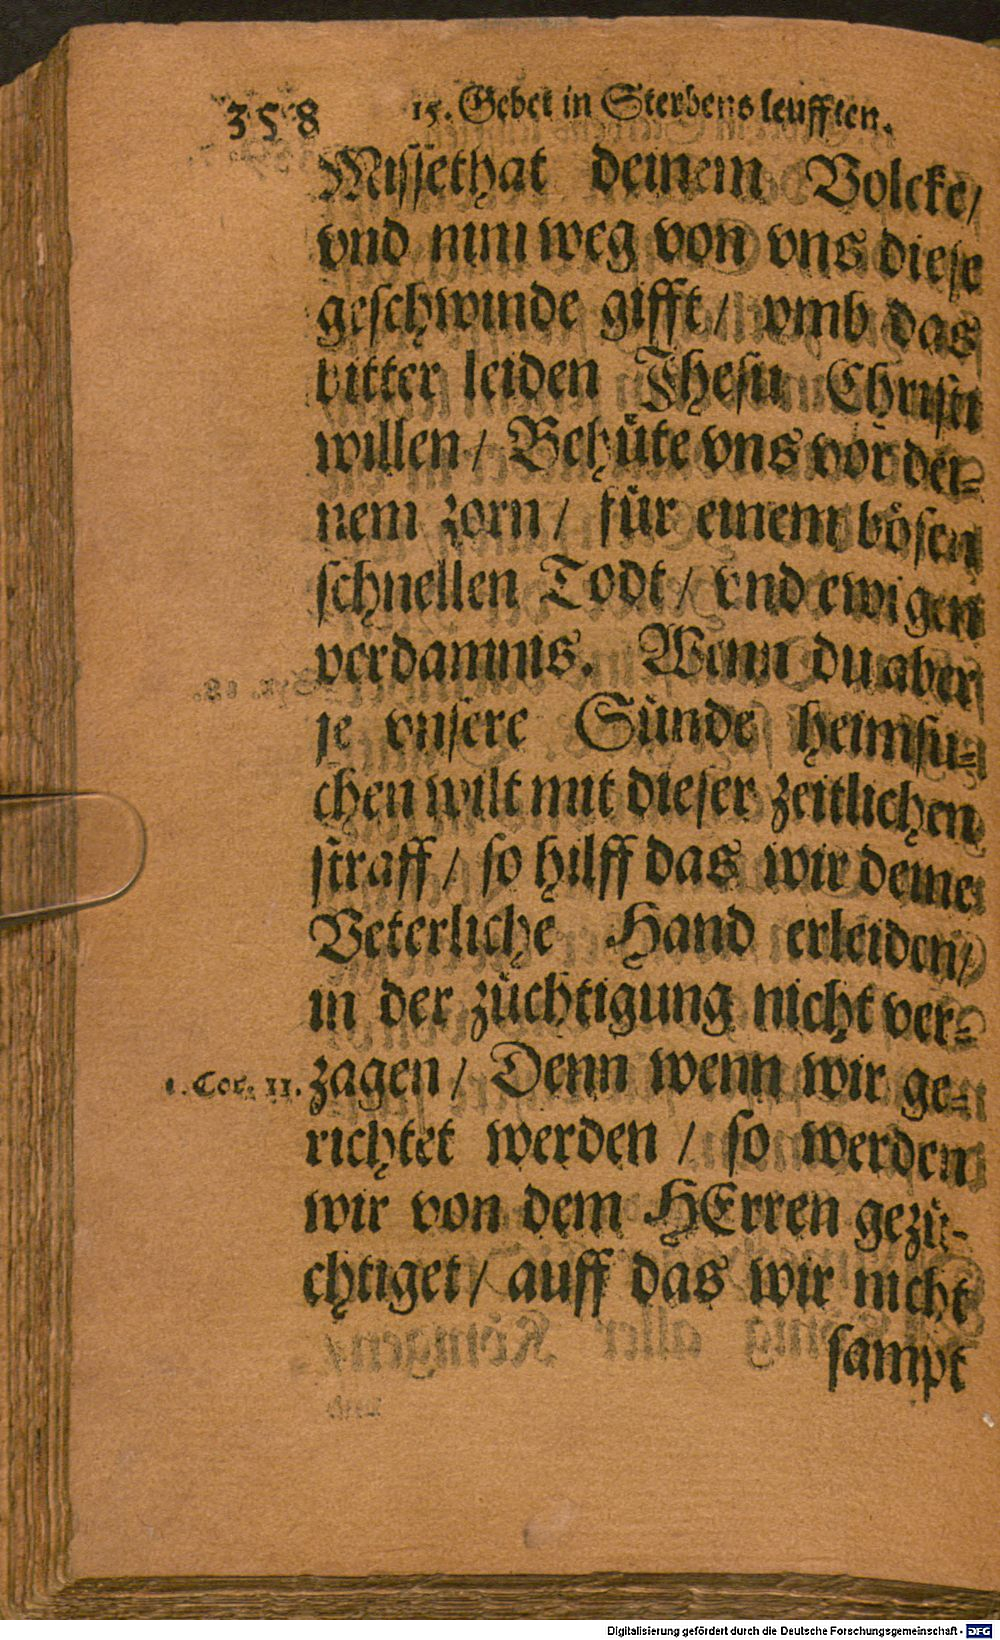 358 15. Gebet in Sterbens leufften.
Missethat deinem Volcke/
vnd nim weg von vns diese
geschwinde gifft / vmb das
bitter leiden Jhesu Christi
willen / Behüte vns vor dei-
nem zorn / für einem bösen
schnellen Todt / vnd ewigen
verdamnis. Wenn du aber
je vnsere Sünde heimsu-
chen wilt mit dieser zeitlichen
straff / so hilff das wir deine
Veterliche Hand erleiden/
in der züchtigung nicht ver-
1. Cor. 11. zagen / Denn wenn wir ge-
richtet werden / so werden
wir von dem HErren gezü-
chtiget / auff das wir nicht
sampt
Digitalisierung gefördert durch die Deutsche Forschungsgemeinschaft - DFG